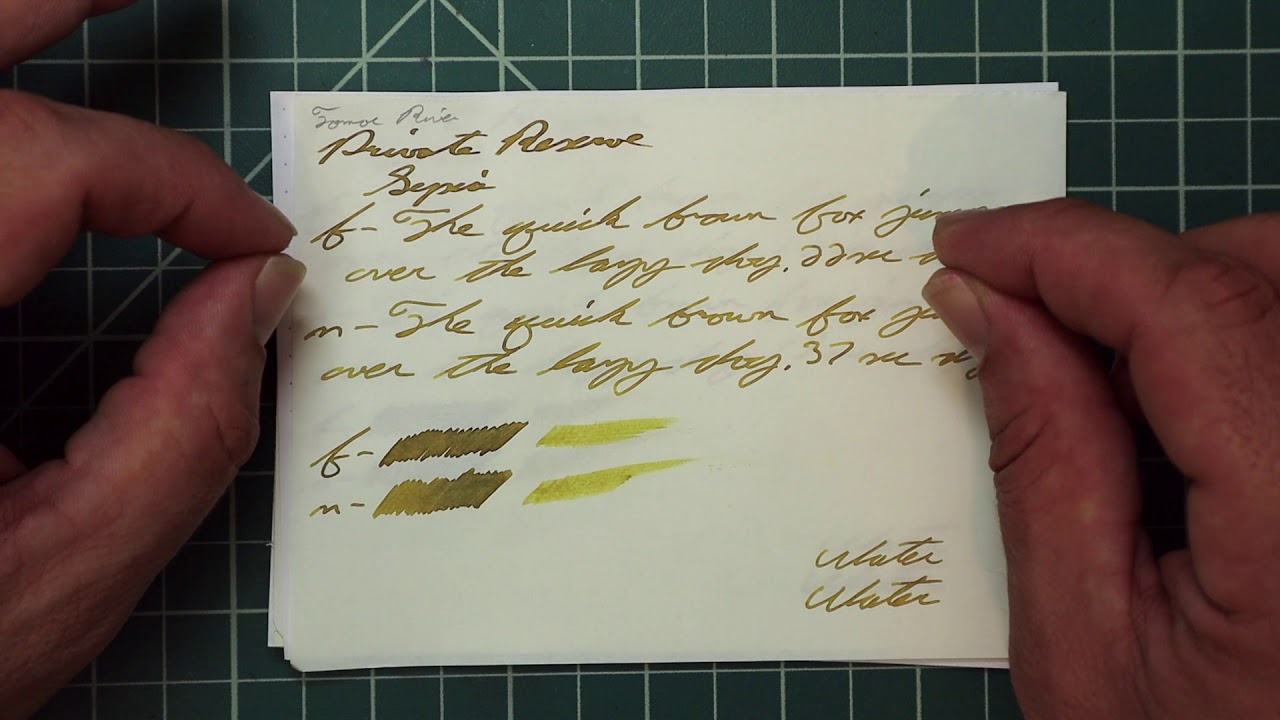 Tomoe River
Private Reserve
Sepia
f - The quick brown fox
over the lazy dog. 22
m - The quick brown fox
over the lazy dog. 37
f -
m -
Water
Water